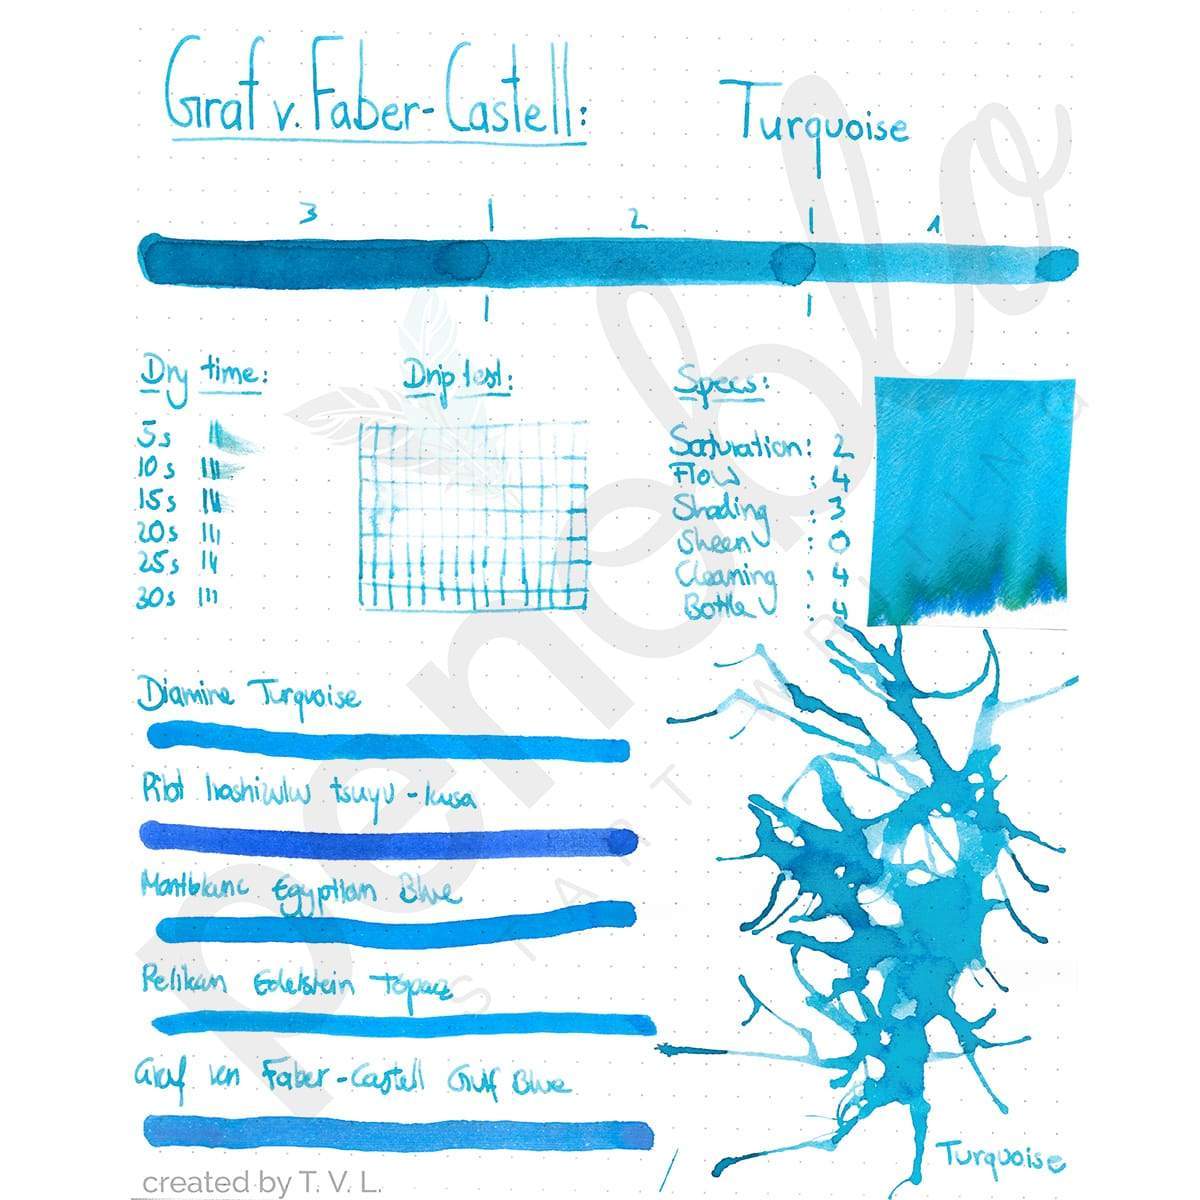 Graf v. Faber-Castell: Turquoise
3 | 2 | 1
Dry time:
5s
10s
15s
20s
25s
30s
Drip test:
Specs:
Saturation: 2
Flow : 4
Shading : 3
Sheen : 0
Cleaning : 4
Bottle : 4
Diamine Turquoise
Pilot Iroshizuku tsuyu-kusa
Montblanc Egyptian Blue
Pelikan Edelstein Topaz
Graf von Faber-Castell Gulf Blue
Turquoise
created by T. V. L.
penoblo
START WRITING